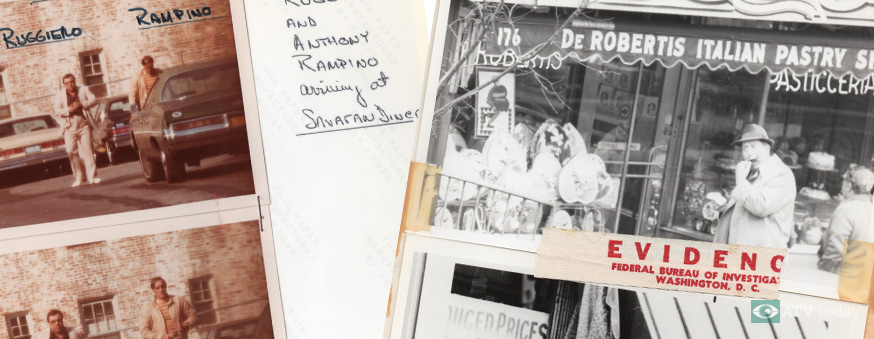 RUGGIERO
RAMPINO
AND
ANTHONY
RAMPINO
arriving at
176 DE ROBERTIS ITALIAN PASTRY
PASTICCERIA
EVIDENC
FEDERAL BUREAU OF INVESTIGAT
WASHINGTON, D. C.
PRICES
ATV Today